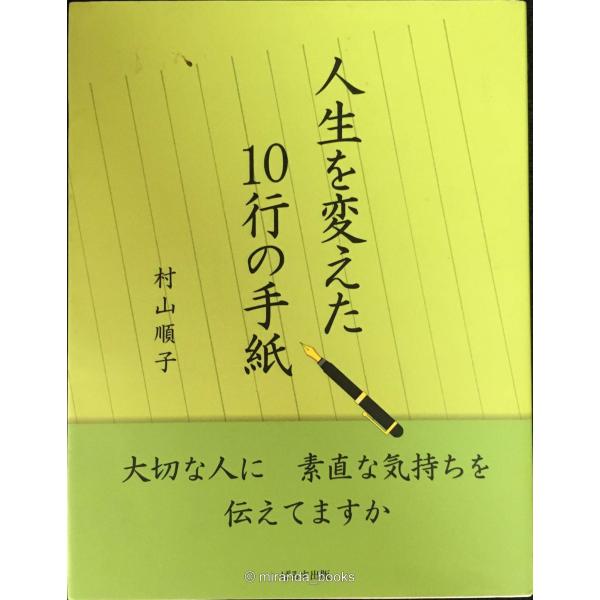 人生を変えた
10行の手紙
村山順子
大切な人に 素直な気持ちを
伝えてますか
© miranda_books